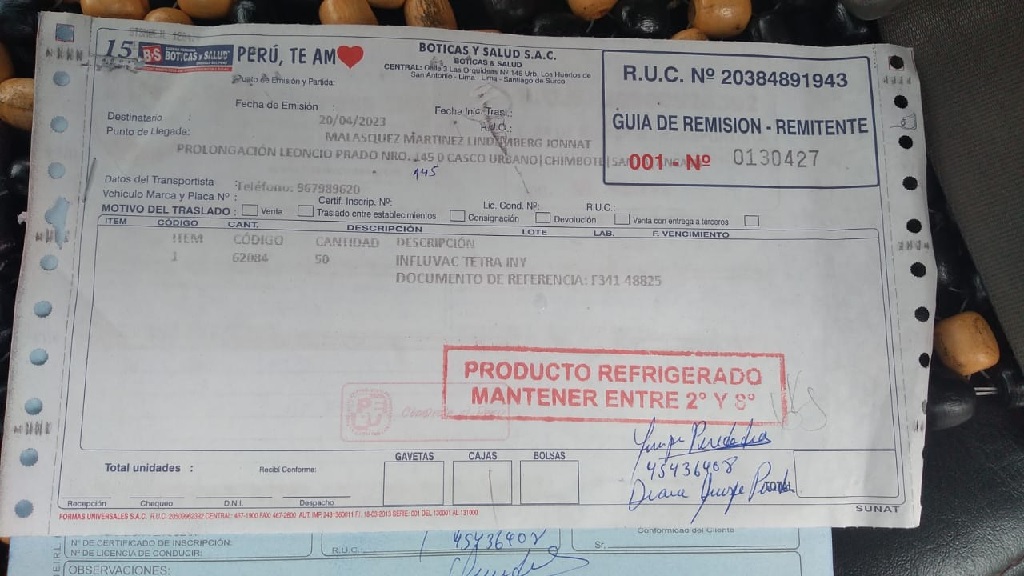 15 B·S BOTICAS Y SALUD PERÚ, TE AM
BOTICAS Y SALUD S.A.C.
BOTICAS & SALUD
San Antonio - Lima - Lima - Santiago de Surco
Punto de Emisión y Partida:
R.U.C. Nº 20384891943
GUIA DE REMISION - REMITENTE
001 - Nº 0130427
Fecha de Emisión :
20/04/2023
Destinatario :
MALASQUEZ MARTINEZ LINDEMBERG JONNAT
R.U.C.:
Punto de Llegada:
PROLONGACIÓN LEONCIO PRADO NRO. 145 0 CASCO URBANO|CHIMBOTE
945
Datos del Transportista
Teléfono: 967989620
Vehiculo Marca y Placa Nº :
Certif. Inscrip. Nº:
Lic. Cond. Nº:
R.U.C.
MOTIVO DEL TRASLADO : Venta Traslado entre establecimientos Consignación Devolución Venta con entrega a terceros
ITEM CÓDIGO CANT. DESCRIPCIÓN LOTE LAB. F. VENCIMIENTO
ITEM CÓDIGO CANTIDAD DESCRIPCIÓN
1 62084 50 INFLUVAC TETRA INY
DOCUMENTO DE REFERENCIA: F341 48825
PRODUCTO REFRIGERADO
MANTENER ENTRE 2º Y 8º
45436408
Total unidades :
Recibí Conforme:
GAVETAS CAJAS BOLSAS
Recepción Chequeo D.N.I. Despacho
SUNAT
Nº DE CERTIFICADO DE INSCRIPCIÓN:
Nº DE LICENCIA DE CONDUCIR:
R.U.C.
45436408
Conformidad del Cliente
Sr.
OBSERVACIONES: